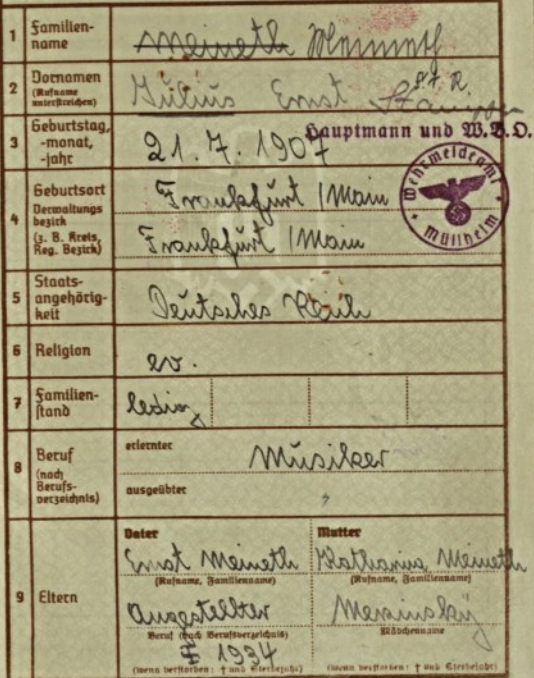 1 Familien-
name
Meineth Meineth
2 Vornamen
(Rufname
unterstreichen)
Julius Ernst
3 Geburtstag,
-monat,
-jahr
21.7.1907
Hauptmann und W.B.O.
4 Geburtsort
Verwaltungs
bezirk
(z. B. Kreis,
Reg. Bezirk)
Frankfurt / Main
Frankfurt / Main
Wehrmeldeamt
Müllheim
5 Staats-
angehörig-
keit
Deutsches Reich
6 Religion
ev.
7 Familien-
stand
ledig
8 Beruf
(nach
Berufs-
verzeichnis)
erlernter
Musiker
ausgeübter
9 Eltern
Vater
Ernst Meineth
(Rufname, Familienname)
Angestellter
Beruf (nach Berufsverzeichnis)
† 1934
(wenn verstorben: † und Sterbejahr)
Mutter
Katharina Meineth
(Rufname, Familienname)
Mersinsky
Mädchenname
(wenn verstorben: † und Sterbejahr)